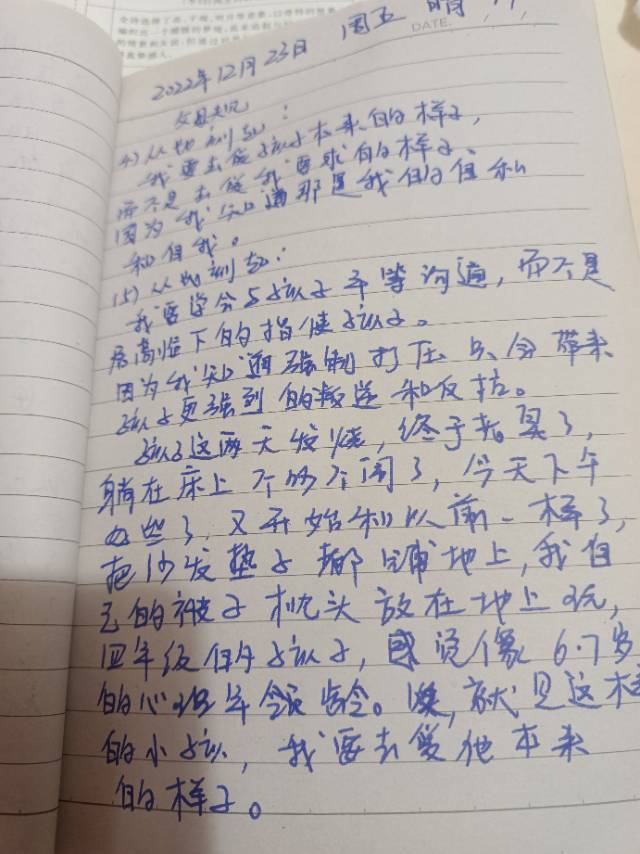 2022年12月23日 周五 晴
DATE.
父母夫凡
(4)从此刻起：
我要去爱孩子本来的样子，
而不是去爱我要求的样子。
因为我知道那是我的自私
和自我。
(5)从此刻起：
我要学会与孩子平等沟通，而不是
居高临下的指使孩子。
因为我知道强制打压只会带来
孩子更强烈的叛逆和反抗。
孩子这两天发烧，终于老实了，
躺在床上不吵不闹了，今天下午
好些了，又开始和以前一样了，
把沙发垫子都铺地上，我自
己的被子枕头放在地上玩，
四年级的孩子，感觉像6.7岁
的心理年龄。唉，就是这样
的小孩，我要去爱他本来
的样子。